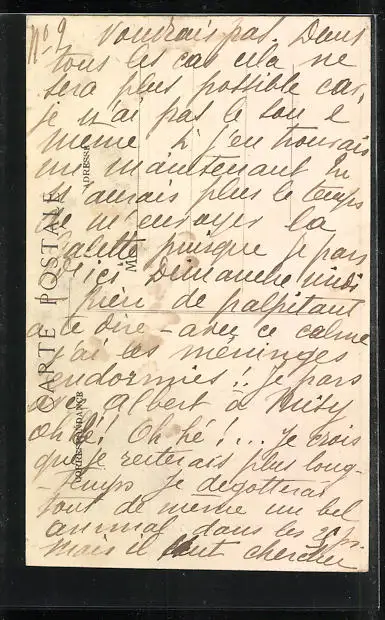 No 9 voudrais pas. Dans
tous les cas cela ne
sera plus possible car,
je n'ai pas le son
même si j'en trouvais
un maintenant tu
n'aurais plus le temps
de m'envoyer la
galette puisque je pars
d'ici Dimanche midi
Rien de palpitant
à te dire - avec ce calme
j'ai les méninges
endormies !. Je pars
avec Albert à
Oh hé! Oh hé !... Je crois
que je resterais plus long-
temps je dégotterai
tout de même un bel
animal dans les
mais il faut chercher
CARTE POSTALE
ADRESSE
CORRESPONDANCE
M